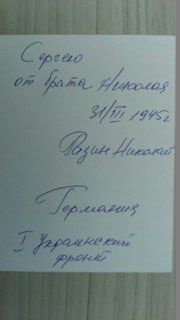 Сергею
от брата Николая
31/III 1945г
Разин Николай
Германия
I Украинский
фронт